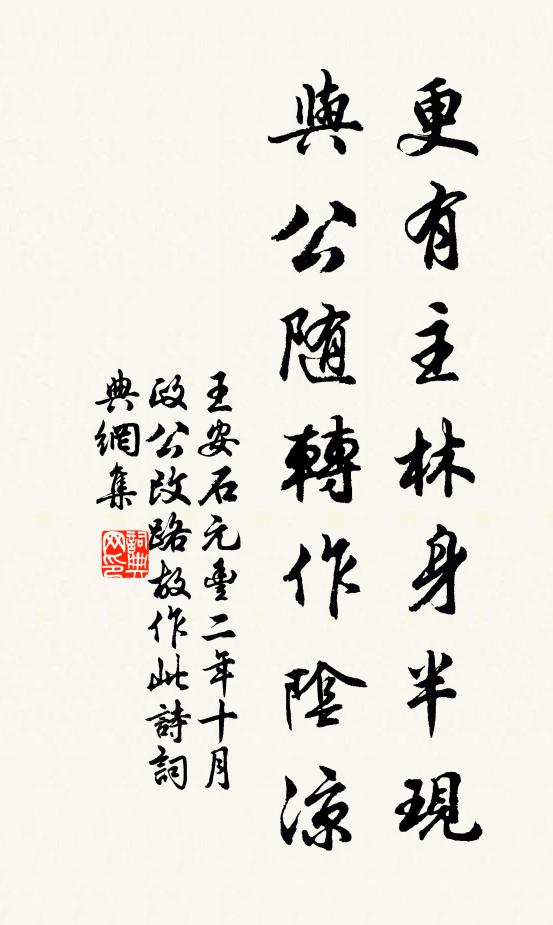 更有主林身半現
與公隨轉作陰涼
王安石元豐二年十月
政公改路故作此詩詞
典網集
詞典
网印